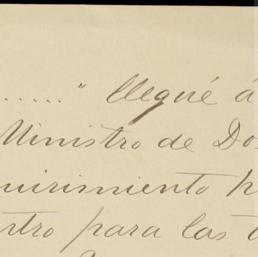 ......" Llegué á
Ministro de Do
uirimiento h
ntro para las